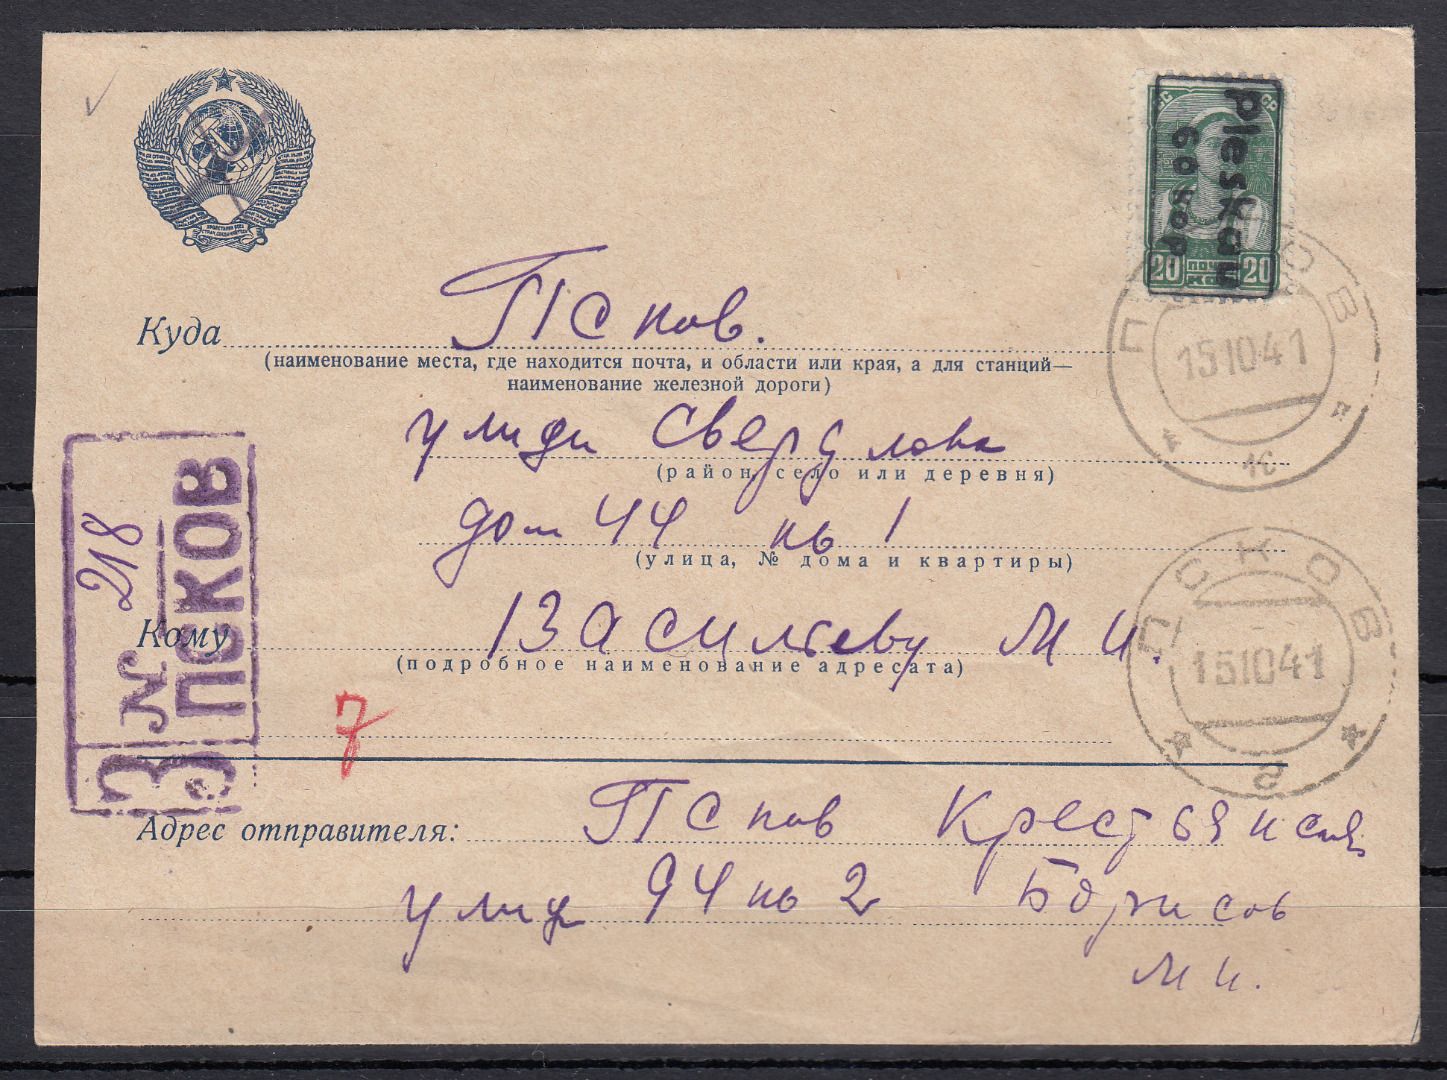 Pleskau
60 коp
20 ПОЧТА 20
КОП
Псков.
Куда
(наименование места, где находится почта, и области или края, а для станций—
наименование железной дороги)
ПСКОВ
15 10 41
1 к
улици Свердлова
(район, село или деревня)
дом 44 кв 1
(улица, № дома и квартиры)
Васильеву М И.
Кому
(подробное наименование адресата)
ПСКОВ
15 10 41
2
З № 218
ПСКОВ
7
Адрес отправителя: Псков Крестьянская
улица 94 кв 2 Борисов
М И.